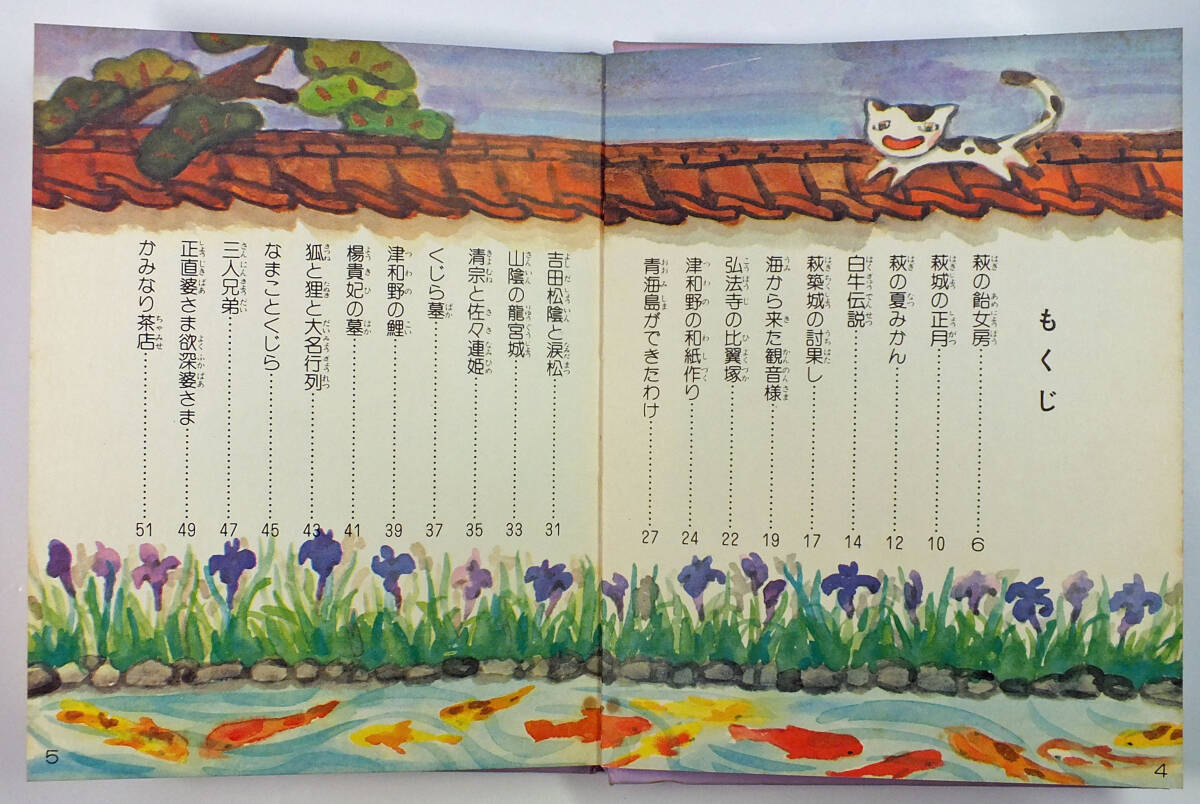 もくじ
萩の飴女房………6
萩城の正月………10
萩の夏みかん………12
白牛伝説………14
萩築城の討果し………17
海から来た観音様………19
弘法寺の比翼塚………22
津和野の和紙作り………24
青海島ができたわけ………27
4
吉田松陰と涙松………31
山陰の龍宮城………33
清宗と佐々連姫………35
くじら墓………37
津和野の鯉………39
楊貴妃の墓………41
狐と狸と大名行列………43
なまことくじら………45
三人兄弟………47
正直婆さま欲深婆さま………49
かみなり茶店………51
5